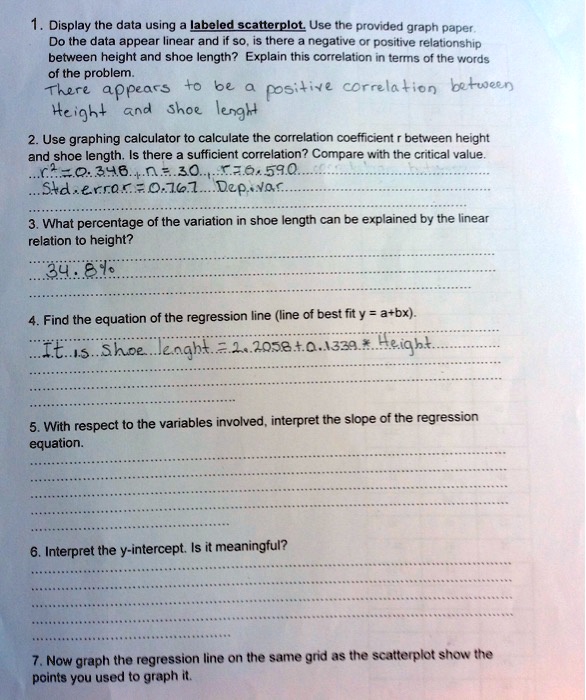 1. Display the data using a labeled scatterplot. Use the provided graph paper.
Do the data appear linear and if so, is there a negative or positive relationship
between height and shoe length? Explain this correlation in terms of the words
of the problem.
There appears to be a positive correlation between
Height and shoe lenght
2. Use graphing calculator to calculate the correlation coefficient r between height
and shoe length. Is there a sufficient correlation? Compare with the critical value.
r²=0.348, n=30, r=0.590
Std.error=0.767 Dep.var.
3. What percentage of the variation in shoe length can be explained by the linear
relation to height?
34.8%
4. Find the equation of the regression line (line of best fit y = a+bx).
It is Shoe lenght = 2.2058+0.1339 * Height
5. With respect to the variables involved, interpret the slope of the regression
equation.
6. Interpret the y-intercept. Is it meaningful?
7. Now graph the regression line on the same grid as the scatterplot show the
points you used to graph it.